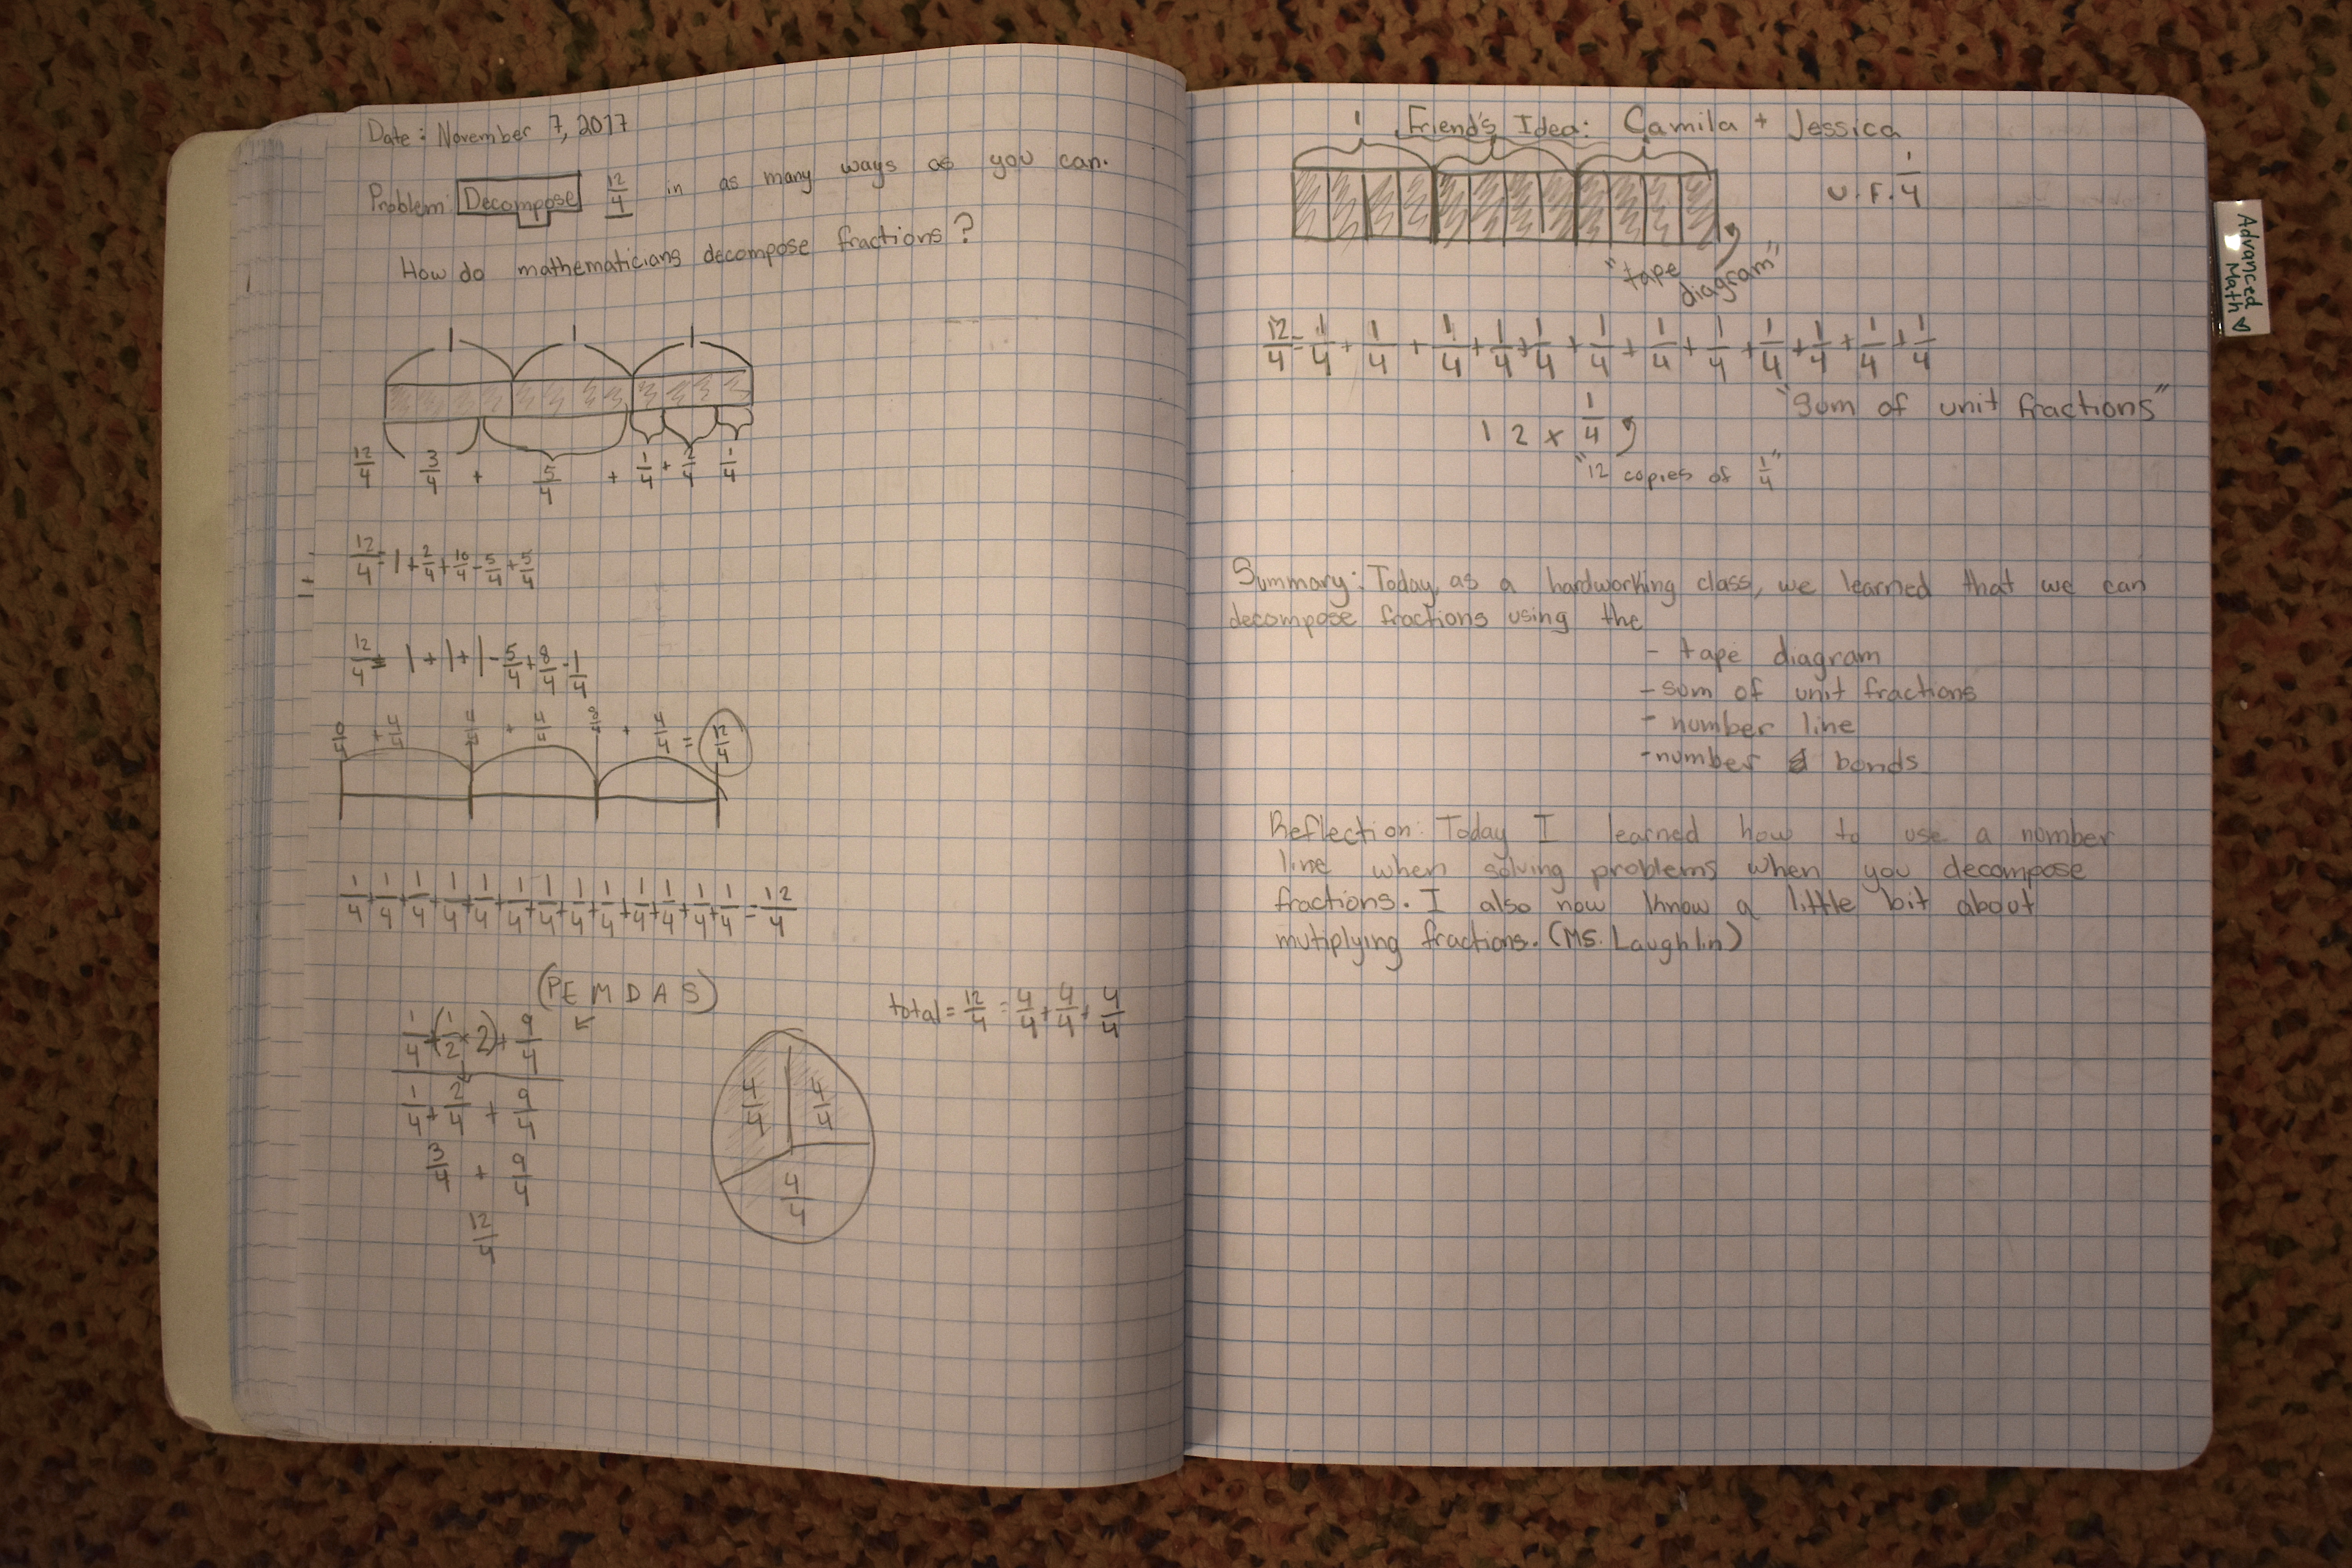 Date: November 7, 2017
Problem: Decompose 12/4 in as many ways as you can.
How do mathematicians decompose fractions?
1 1 1
12/4 3/4 + 5/4 + 1/4 + 2/4 1/4
12/4 = 1 + 2/4 + 10/4 - 5/4 + 5/4
12/4 = 1 + 1 + 1 - 5/4 + 8/4 - 1/4
0/4 + 4/4 4/4 + 4/4 8/4 + 4/4 = 12/4
1/4 + 1/4 + 1/4 + 1/4 + 1/4 + 1/4 + 1/4 + 1/4 + 1/4 + 1/4 + 1/4 + 1/4 + 1/4 = 12/4
(PEMDAS)
1/4 + (1/2 × 2) + 9/4
1/4 + 2/4 + 9/4
3/4 + 9/4
12/4
total = 12/4 = 4/4 + 4/4 + 4/4
4/4 4/4
4/4
Friend's Idea: Camila + Jessica
1 1 1
U.F. 1/4
"tape diagram"
12/4 = 1/4 + 1/4 + 1/4 + 1/4 + 1/4 + 1/4 + 1/4 + 1/4 + 1/4 + 1/4 + 1/4 + 1/4
"Sum of unit fractions"
12 × 1/4
"12 copies of 1/4"
Summary: Today, as a hardworking class, we learned that we can
decompose fractions using the
- tape diagram
- sum of unit fractions
- number line
- number bonds
Reflection: Today I learned how to use a number
line when solving problems when you decompose
fractions. I also now know a little bit about
mutiplying fractions. (Ms. Laughlin)
Advanced
Math ♡